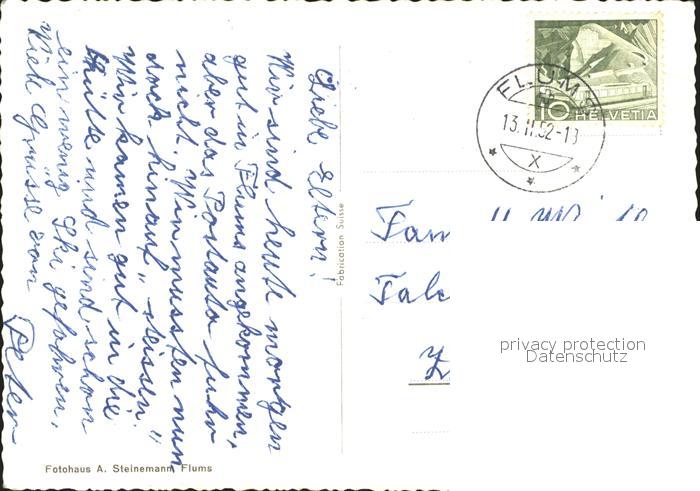 Liebe Eltern!
Wir sind heute morgen
gut in Flums angekommen,
aber das Postauto fuhr
nicht. Wir mussten nun
doch hinauf "steissen".
Wir kamen gut in die
Hütte und sind schon
ein wenig Ski gefahren.
Viele Grüsse von
Peter
Fotohaus A. Steinemann, Flums
Fabrication Suisse
FLUMS
13.II.52-18
X
10 HELVETIA
Fam
Falk
Z
privacy protection
Datenschutz